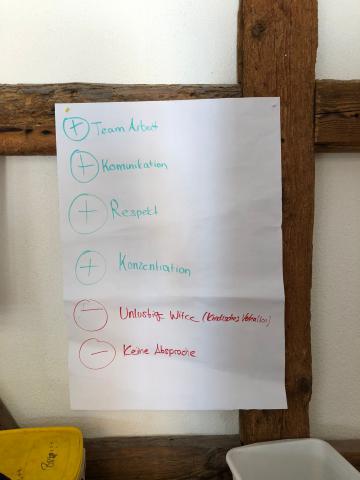 + Team Arbeit
+ Komunikation
+ Respekt
+ Konzentration
- Unlustige Witze (Kindisches Verhalten)
- Keine Absprache